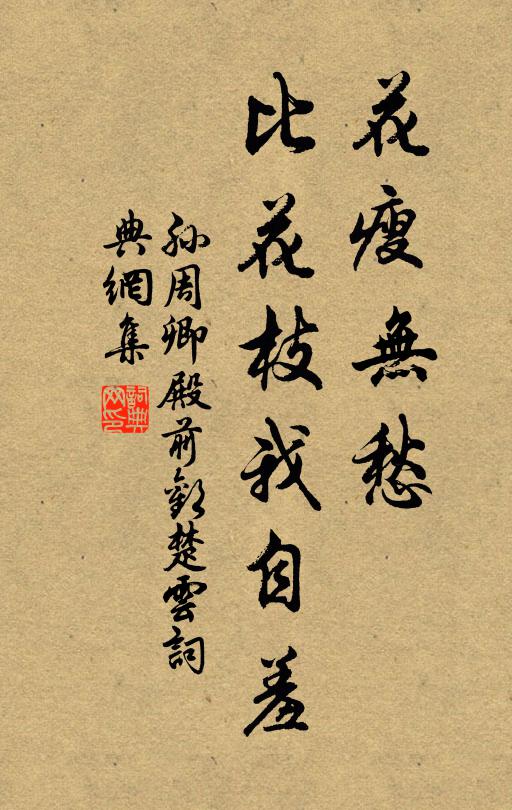 花瘦無愁
比花枝我自羞
孫周卿殿前歡楚雲詞
典網集
詞典网印